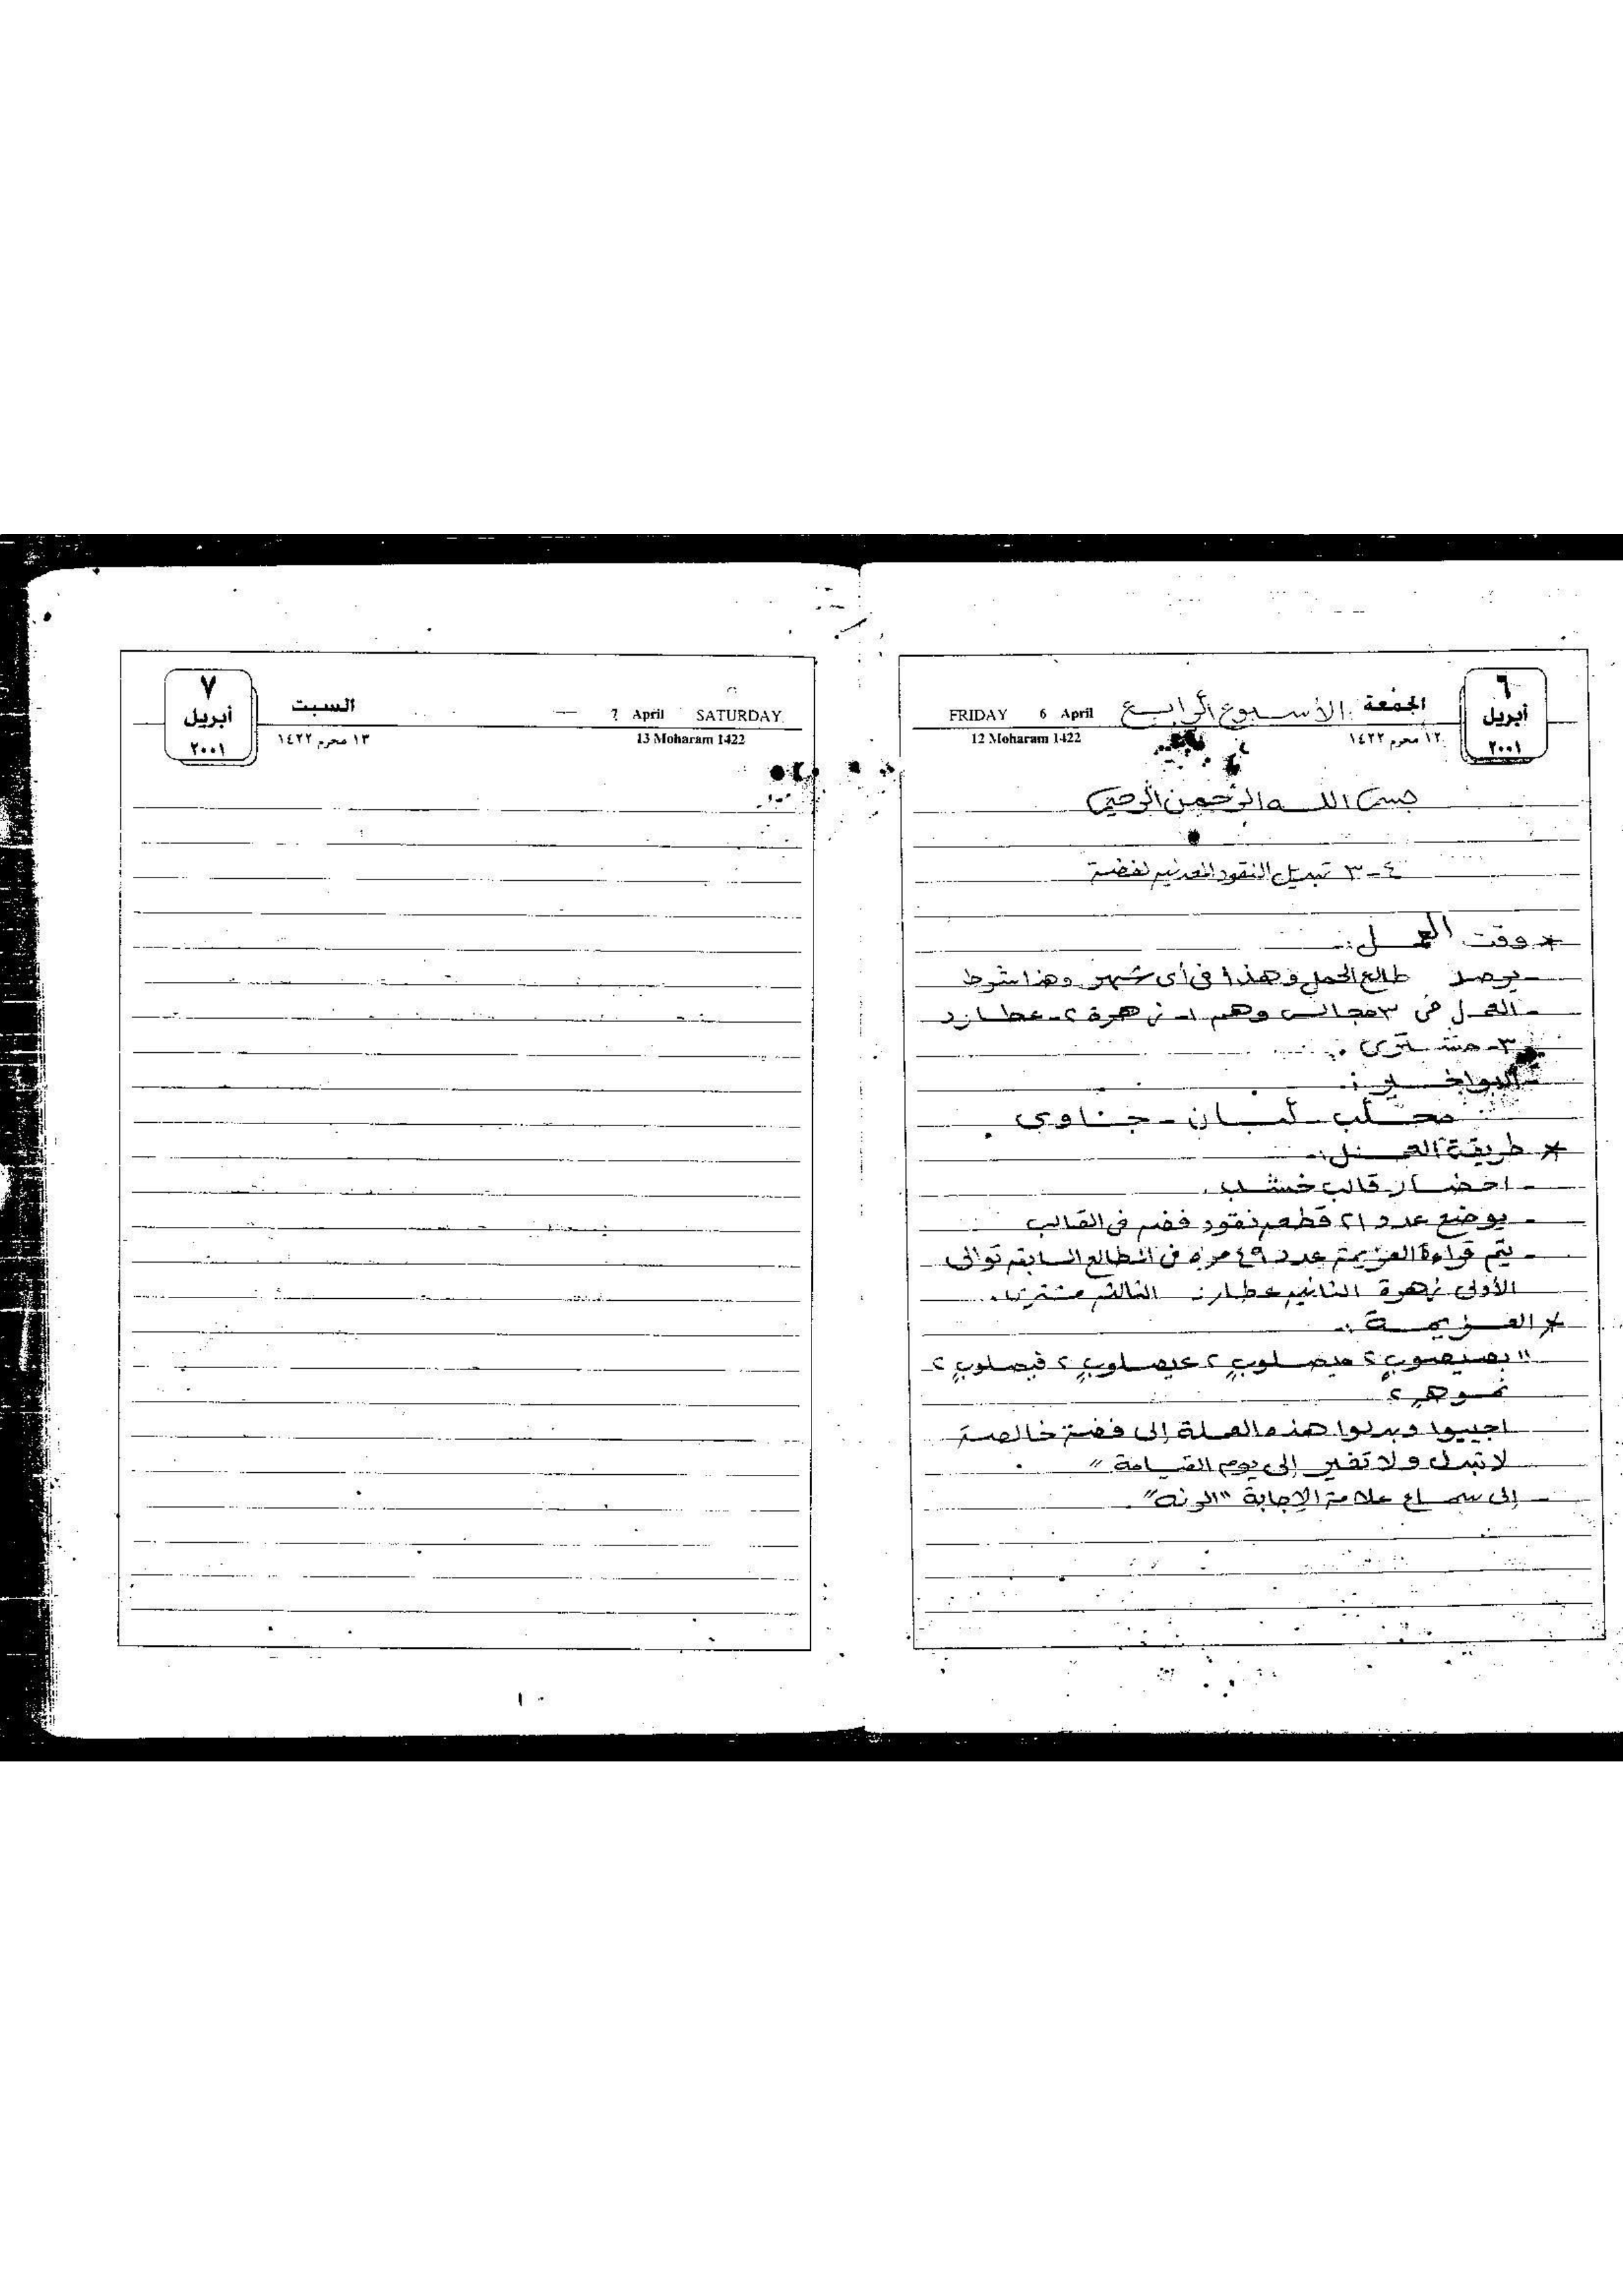 ٦
أبريل
٢٠٠١
الجمعة الأسبوع الرابع
FRIDAY 6 April
١٢ محرم ١٤٢٢
12 Moharam 1422
بسم الله الرحمن الرحيم
٤-٣ تبديل النقود المعدنيه لفضة
* وقت العمل:-
- يرصد طالع الحمل وهذا فى أى شهر وهذا شرط
- العمل فى ٣ مجالس وهم ١- زهرة ٢- عطارد
٣- مشترى
- البواخير:-
محلب - لبان - جناوى.
* طريقة العمل:-
- احضار قالب خشب.
- يوضع عدد ٢١ قطعه نقود فضه فى القالب
- يتم قراءة العزيمة عدد ٤٩ مره فى الطالع السابقه توالى
الأولى زهرة الثانيه عطارد الثالثه مشترى.
* العزيمة:-
"بصيصوبٍ ٢ ميصلوبٍ ٢ عيصلوبٍ ٢ فيصلوبٍ ٢
نموهٍ ٢
اجيبوا وبدلوا هذه العملة إلى فضة خالصة
لا تبدل ولا تغير إلى يوم القيامة"
- إلى سماع علامة الإجابة "الرنه".
٧
أبريل
٢٠٠١
السبت
7 April SATURDAY
١٣ محرم ١٤٢٢
13 Moharam 1422
١٠